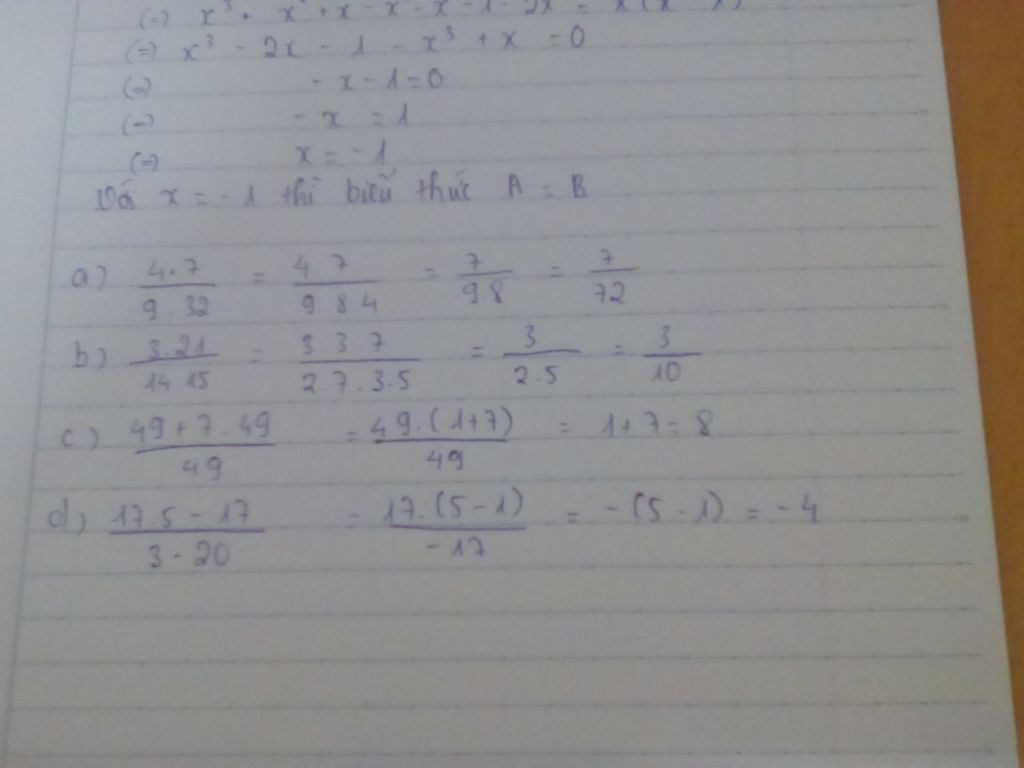 (=) x³ + x² + x - x² - x - 1 - 2x = x(x² - 1)
(=) x³ - 2x - 1 - x³ + x = 0
(=) - x - 1 = 0
(=) - x = 1
(=) x = - 1
Vậy x = - 1 thì biểu thức A = B
a) 4.7 / 9.32 = 4.7 / 9.8.4 = 7 / 9.8 = 7 / 72
b) 3.21 / 14.15 = 3.3.7 / 2.7.3.5 = 3 / 2.5 = 3 / 10
c) 49 + 7.49 / 49 = 49.(1+7) / 49 = 1+7 = 8
d) 17.5 - 17 / 3 - 20 = 17.(5-1) / -17 = -(5-1) = -4